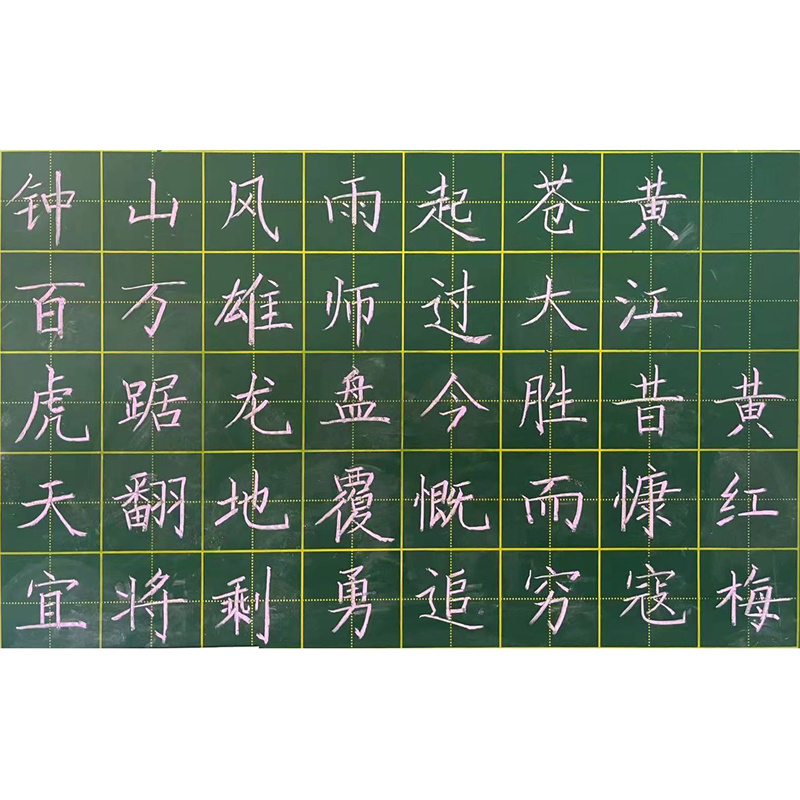 钟山风雨起苍黄
百万雄师过大江
虎踞龙盘今胜昔黄
天翻地覆慨而慷红
宜将剩勇追穷寇梅